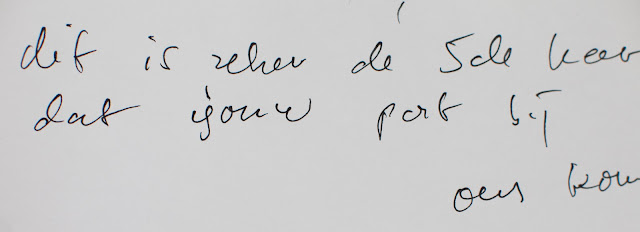 dit is zeker dé 5de keer
dat jouw post bij
ons kom